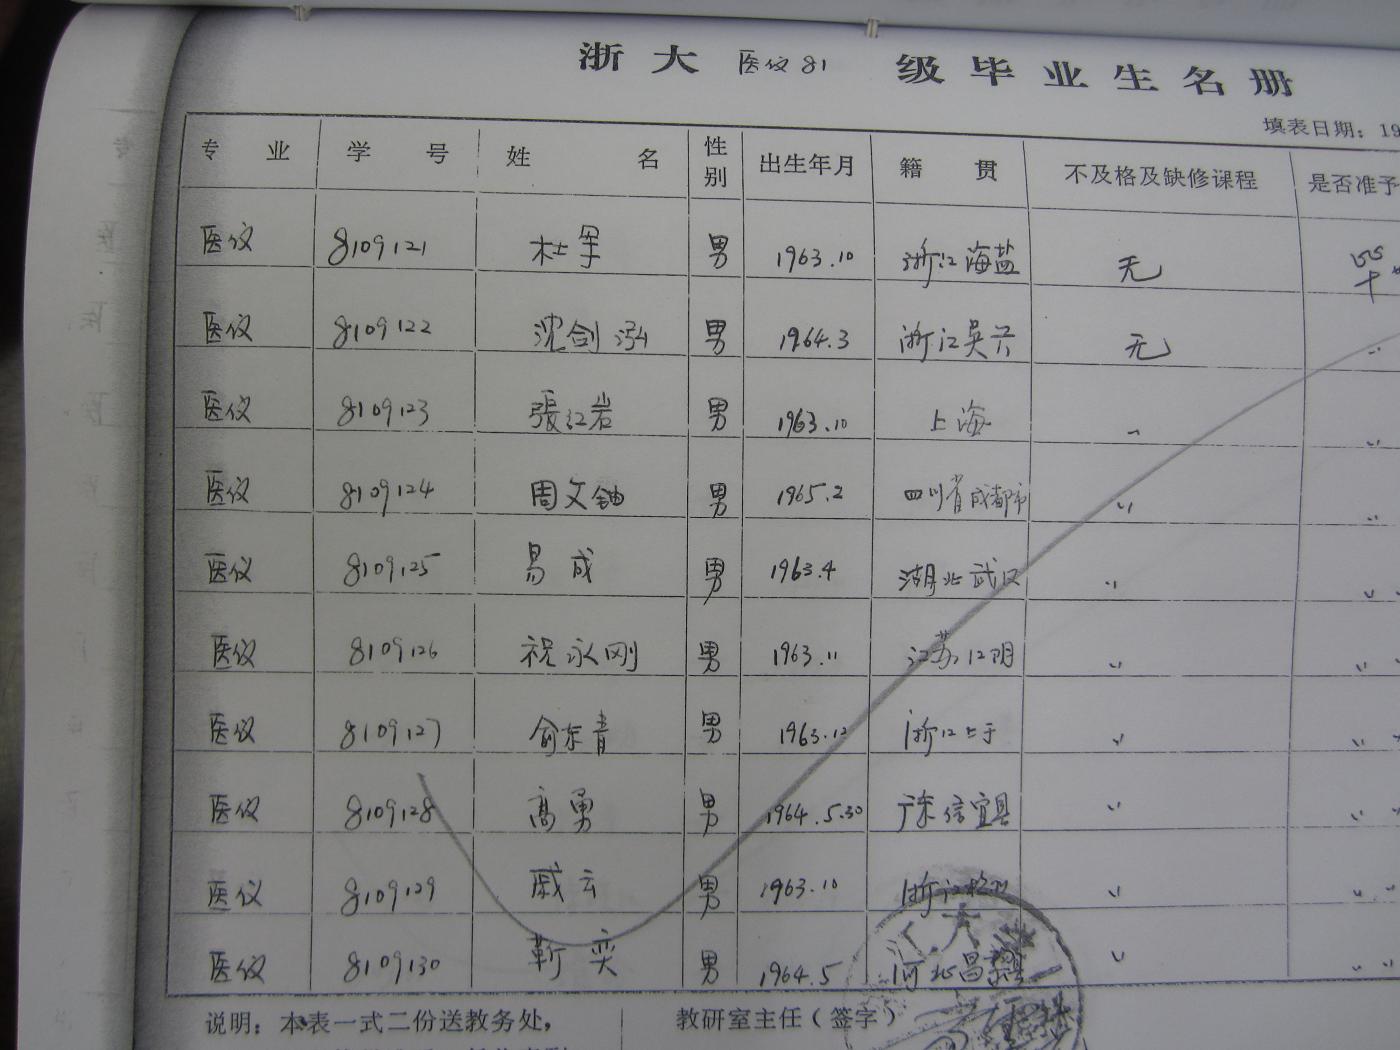 浙大 医仪81 级毕业生名册
填表日期：19
专业 学号 姓名 性别 出生年月 籍贯 不及格及缺修课程 是否准予
医仪 8109121 杜军 男 1963.10 浙江海盐 无
医仪 8109122 沈剑泓 男 1964.3 浙江吴兴 无 〃
医仪 8109123 張江岩 男 1963.10 上海 〃 〃
医仪 8109124 周文 男 1965.2 四川省成都市 〃 〃
医仪 8109125 易成 男 1963.4 湖北武汉 〃 〃
医仪 8109126 祝永刚 男 1963.11 江苏江阴 〃 〃
医仪 8109127 俞东青 男 1963.12 浙江上于 〃 〃
医仪 8109128 高勇 男 1964.5.30 广东信宜县 〃 〃
医仪 8109129 戚云 男 1963.10 浙江 〃 〃
医仪 8109130 靳奕 男 1964.5 河北昌黎 〃 〃
说明：本表一式二份送教务处， 教研室主任（签字）